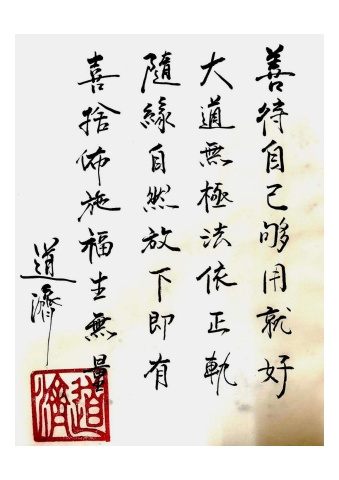 善待自己够用就好
大道無極法依正軌
隨緣自然放下即有
喜捨佈施福生無量
道濟
道濟